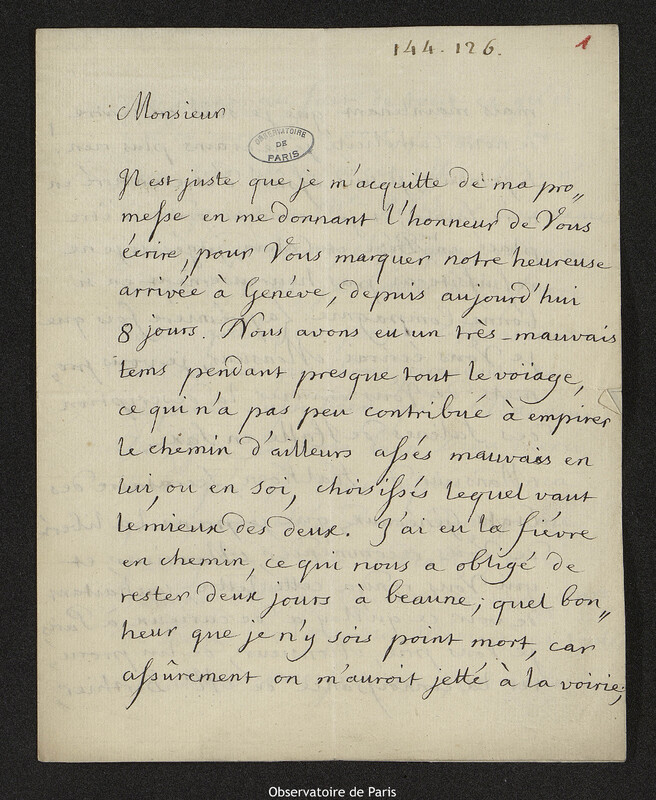 144.126.
1
Monsieur
OBSERVATOIRE
DE
PARIS
Il est juste que je m'acquitte de ma pro„
messe en me donnant l'honneur de Vous
écrire, pour Vous marquer notre heureuse
arrivée à Genéve, depuis aujourd'hui
8 jours. Nous avons eu un très-mauvais
tems pendant presque tout le voïage,
ce qui n'a pas peu contribué à empirer
le chemin d'ailleurs assés mauvais en
lui, ou en soi, choisissés lequel vaut
le mieux des deux. J'ai eu la fiévre
en chemin, ce qui nous a obligé de
rester deux jours à beaune; quel bon„
heur que je n'y sois point mort, car
assûrement on m'auroit jetté à la voirie;
Observatoire de Paris